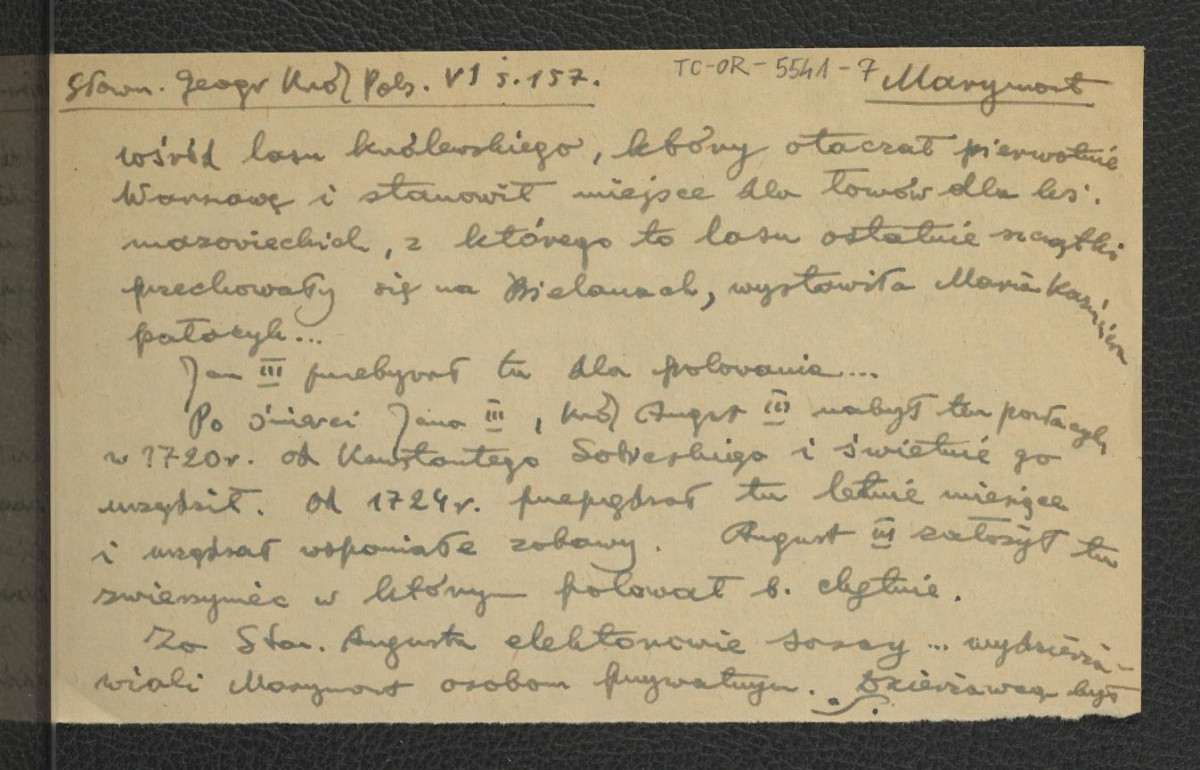 Słown. Geogr Król Pols. VI s. 157. TC-OR-5541-7 Marymont
wśród lasu królewskiego, który otaczał pierwotnie
Warszawę i stanowił miejsce dla łowów dla ks.
mazowieckich, z którego to lasu ostatnie szczątki
przechowały się na Bielanach, wystawiła Maria Kazimiera
pałacyk...
Jan III przebywał tu dla polowania...
Po śmierci Jana III, król August nabył ten pałacyk
w 1720r. od Konstantego Sobieskiego i świetnie go
urządził. Od 1724r. przepędzał tu letnie miesiące
i urządzał wspaniałe zabawy. August III założył tu
zwierzyniec w którym polował b. chętnie.
Za Stan. Augusta elektorowie sascy ... wydzierża-
wiali Marymont osobom prywatnym. Dzierżawcą był